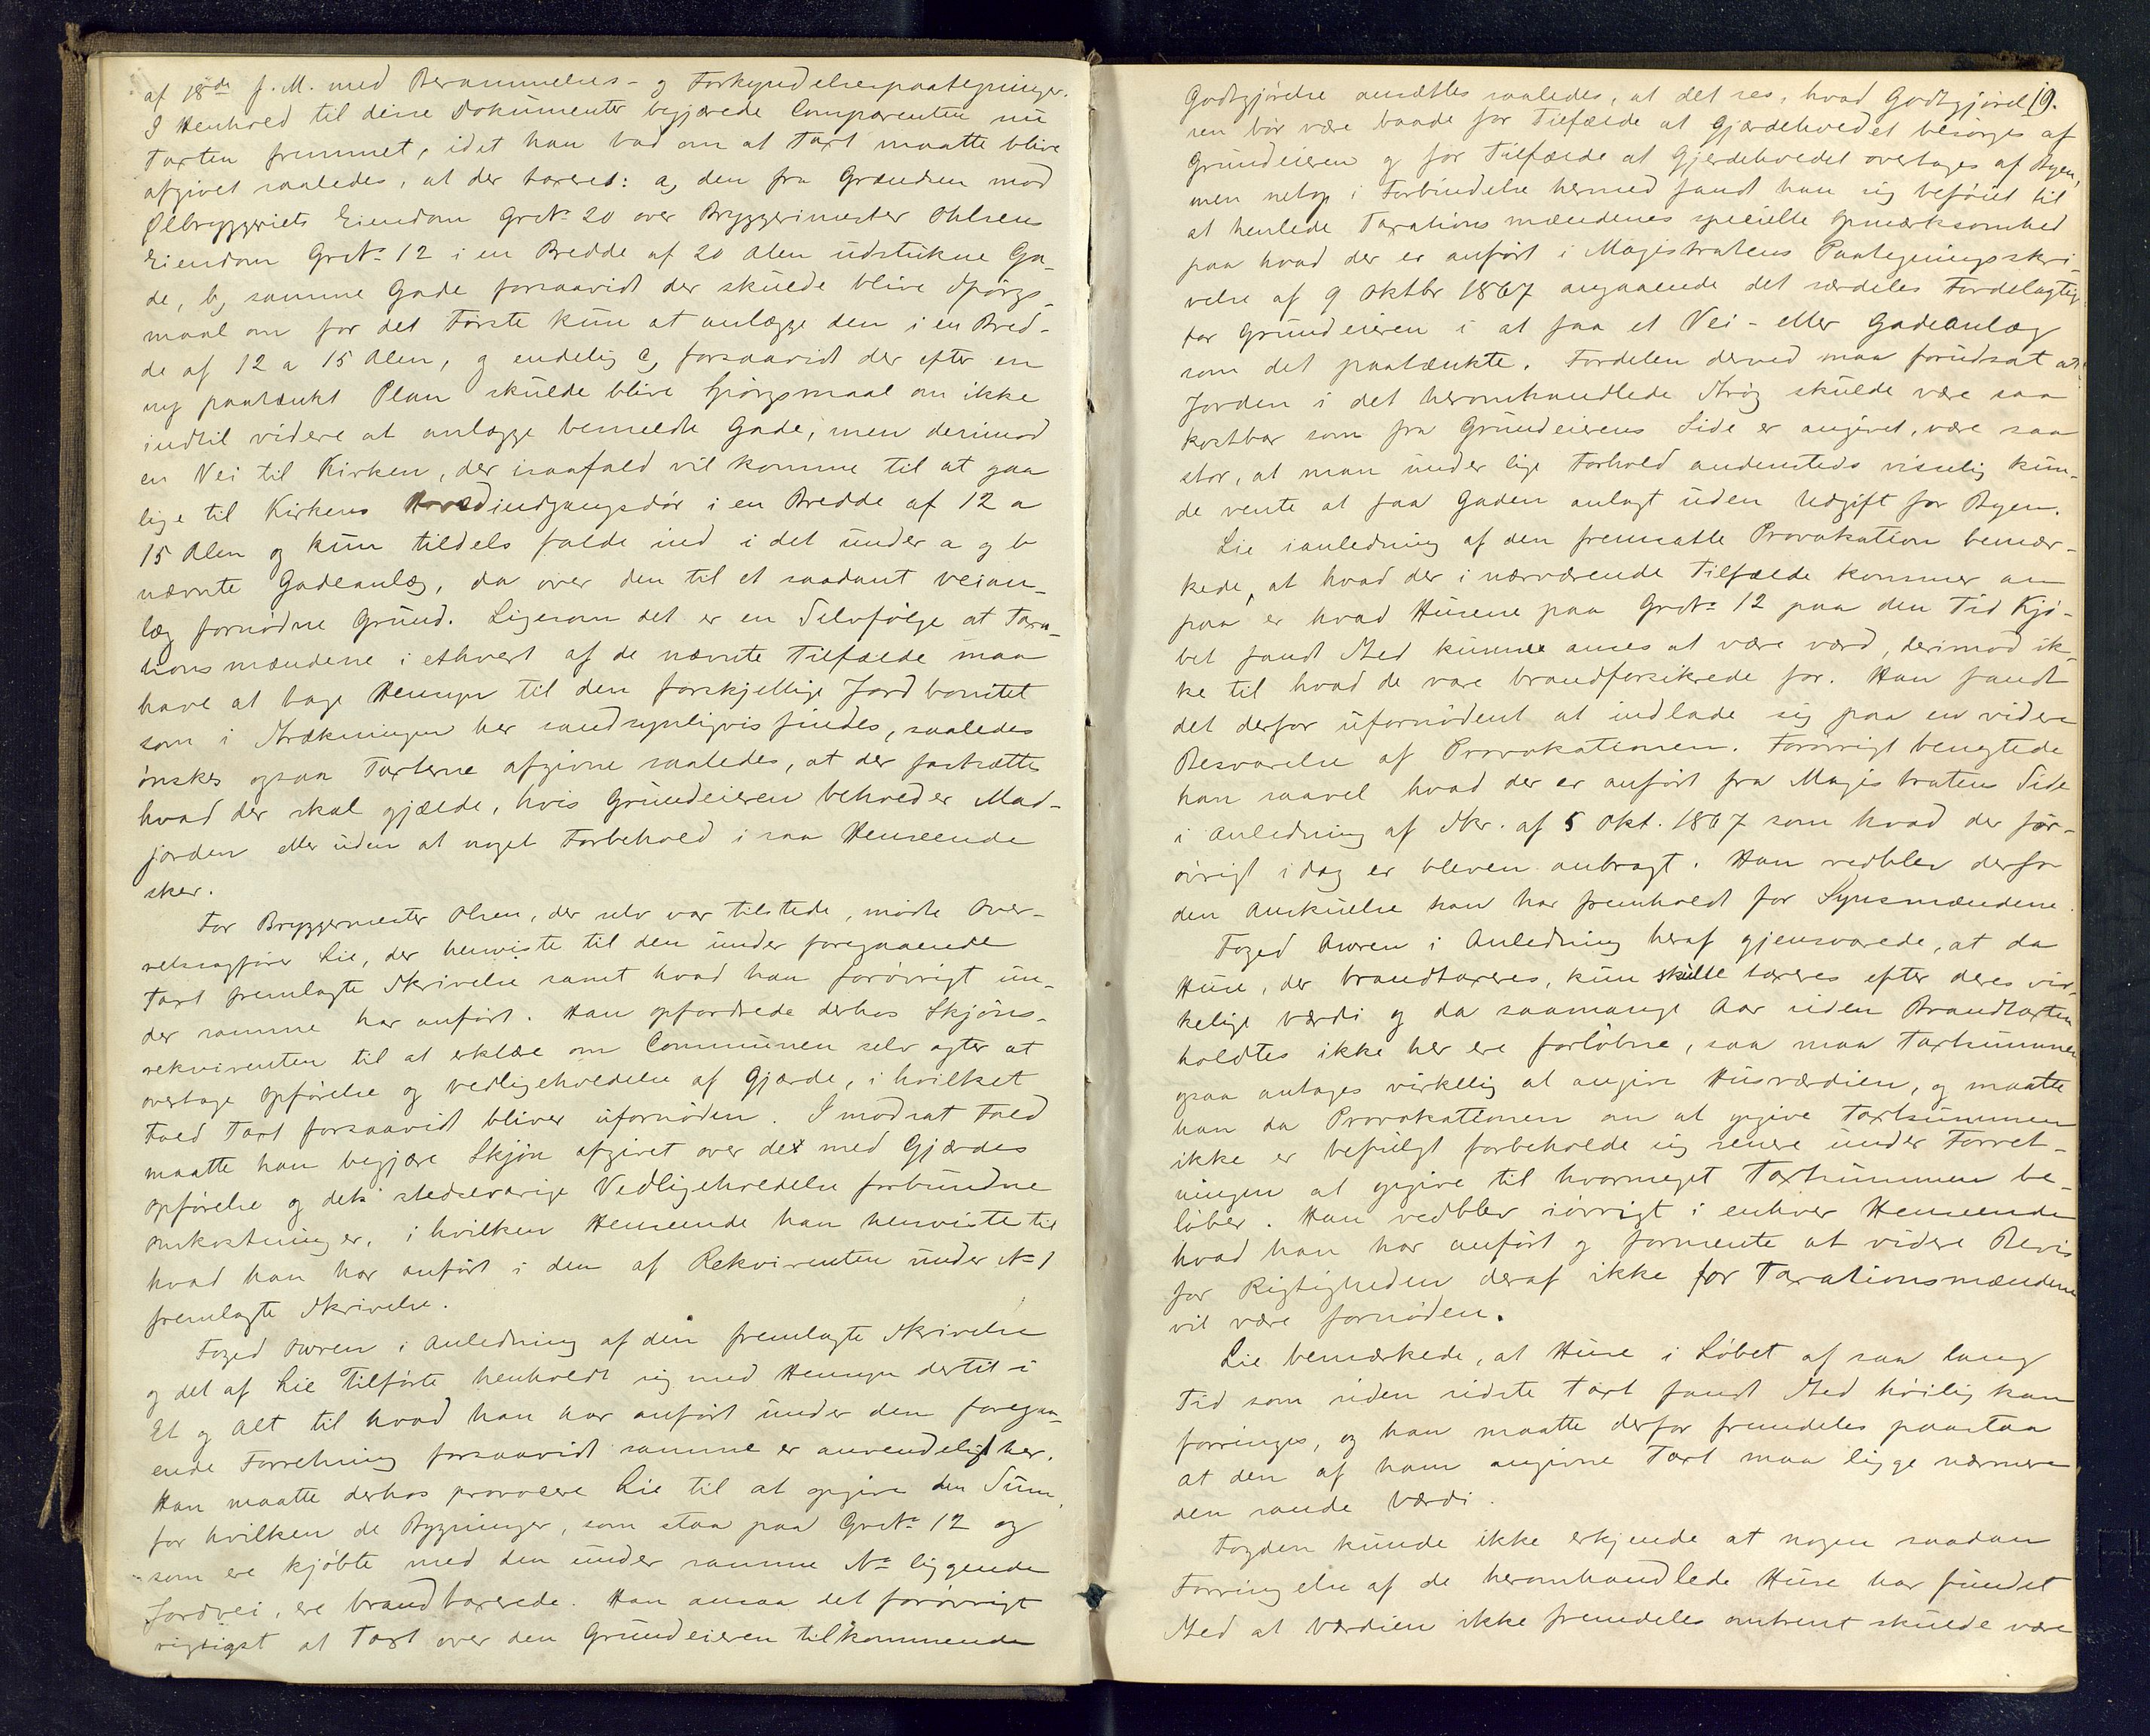 af 18de f. M. med Berammelses- og Forkyndelsespaategninger.
I Henhold til disse Dokumenter begjærede Comparenten nu
Taxten fremmet, idet han bad om at Taxt maatte blive
afgivet saaledes, at der taxeres: a, den fra Grændsen mod
Ølbryggeriets Eiendom GrN. 20 over Bryggerimester Ohlsens
Eiendom GrN. 12 i en Bredde af 20 Alen udstukne Ga-
de, b, samme Gade forsaavidt der skulde blive Spørgs-
maal om for det Første kun at anlægge den i en Bred-
de af 12 a 15 Alen, og endelig c, forsaavidt der efter en
ny paatænkt Plan skulde blive Spørgsmaal om ikke
indtil videre at anlægge bemeldte Gade, men derimod
en Vei til Kirken, der isaafald vil komme til at gaa
lige til Kirkens Hovedindgangsdør i en Bredde af 12 a
15 Alen og kun tildels falde ind i det under a og b
nævnte Gadeanlæg, da over den til et saadant veian-
læg fornødne Grund. Ligesom det er en Selvfølge at Taxa-
tionsmændene i ethvert af de nævnte Tilfælde maa
have at tage Hensyn til den forskjellige Jordbonitet
som i Strækningen her sandsynligvis findes, saaledes
ønskes ogsaa Taxterne afgivne saaledes, at der fastsættes
hvad der skal gjælde, hvis Grundeieren beholder Mad-
jorden eller uden at noget Forbehold i saa Henseende
sker.
For Bryggermester Olsen, der selv var tilstede, mødte Over-
retssagfører Lie, der henviste til den under foregaaende
Taxt fremlagte Skrivelse samt hvad han forøvrigt un-
der samme har anført. Han opfordrede derhos Skjøns-
rekvirenten til at erklære om Communen selv agter at
overtage Opførelse og vedligeholdelse af Gjærde, i hvilket
Fald Taxt forsaavidt bliver ufornøden. I modsat Fald
maatte han begjære Skjøn afgivet over det med Gjærdes
opførelse og dets stedsevarige Vedligeholdelse forbundne
Omkostninger, i hvilken Henseende han henviste til
hvad han har anført i den af Rekvirenten under N. 1
fremlagte Skrivelse.
Foged Owren i Anledning af den fremlagte Skrivelse
og det af Lie Tilførte henholdt sig med Hensyn dertil i
Et og Alt til hvad han har anført under den foregaa-
ende Forretning forsaavidt samme er anvendeligt her.
Han maatte derhos provocere Lie til at opgive den Sum,
for hvilken de Bygninger, som staa paa GrN. 12 og
som ere kjøbte med den under samme N. liggende
Jordvei, ere brandtaxerede. Han ansaa det forøvrigt
rigtigst at Taxt over den Grundeieren tilkommende
19.
Godtgjørelse ansættes saaledes, at det sees, hvad Godtgjørel-
sen bør være baade for Tilfælde at Gjærdeholdet besørges af
Grundeieren og for Tilfælde at Gjerdeholdet overtages af Byen,
men netop i Forbindelse hermed fandt han sig beføiet til
at henlede Taxationsmændenes specielle Opmærksomhed
paa hvad der er anført i Magistratens Paategningsskri-
velse af 9 Oktbr 1867 angaaende det særdeles Fordelagtige
for Grundeieren i at faa et Vei- eller Gadeanlæg
som det paatænkte. Fordelen derved maa forudsat at
Jorden i det heromhandlede Strøg skulde være saa
kostbar som fra Grundeierens Side er angivet, være saa
stor, at man under lige Forhold andensteds visselig kun-
de vente at faa Gaden anlagt uden Udgift for Byen.
Lie ianledning af den fremsatte Provokation bemær-
kede, at hvad der i nærværende Tilfælde kommer an
paa er hvad Husene paa GrN. 12 paa den Tid Kjø-
bet fandt Sted kunne anses at være værd, derimod ik-
ke til hvad de vare brandforsikrede for. Han fandt
det derfor ufornødent at indlade sig paa en videre
Besvarelse af Provokationen. Forøvrigt benegtede
han saavel hvad der er anført fra Magistratens Side
i Anledning af Skr. af 5 Okt. 1867 som hvad der for-
øvrigt idag er bleven anbragt. Han vedblev derfor
den Anskuelse han har fremholdt for Synsmændene.
Foged Owren i Anledning heraf gjensvarede, at da
Huse, der brandtaxeres, kun skulle taxeres efter deres vir-
kelige værdi og da saamange Aar siden Brandtaxten
holdtes ikke her ere forløbne, saa maa Taxtsummen
ogsaa antages virkelig at angive Husværdien, og maatte
han da Provokationen om at opgive Taxtsummen
ikke er befulgt forbeholde sig senere under Forret-
ningen at opgive til hvormeget Taxtsummen be-
løber. Han vedblev iøvrigt i enhver Henseende
hvad han har anført og formente at videre Bevis
for Rigtigheden deraf ikke for Taxationsmændene
vil være fornøden.
Lie bemærkede, at Huse i Løbet af saa lang
Tid som siden sidste Taxt fandt Sted høilig kan
forringes, og han maatte derfor fremdeles paastaa
at den af ham angivne Taxt maa ligge nærmere
den sande Værdi.
Fogden kunde ikke erkjende at nogen saadan
Forringelse af de heromhandlede Huse har fundet
Sted at Værdien ikke fremdeles omtrent skulde være